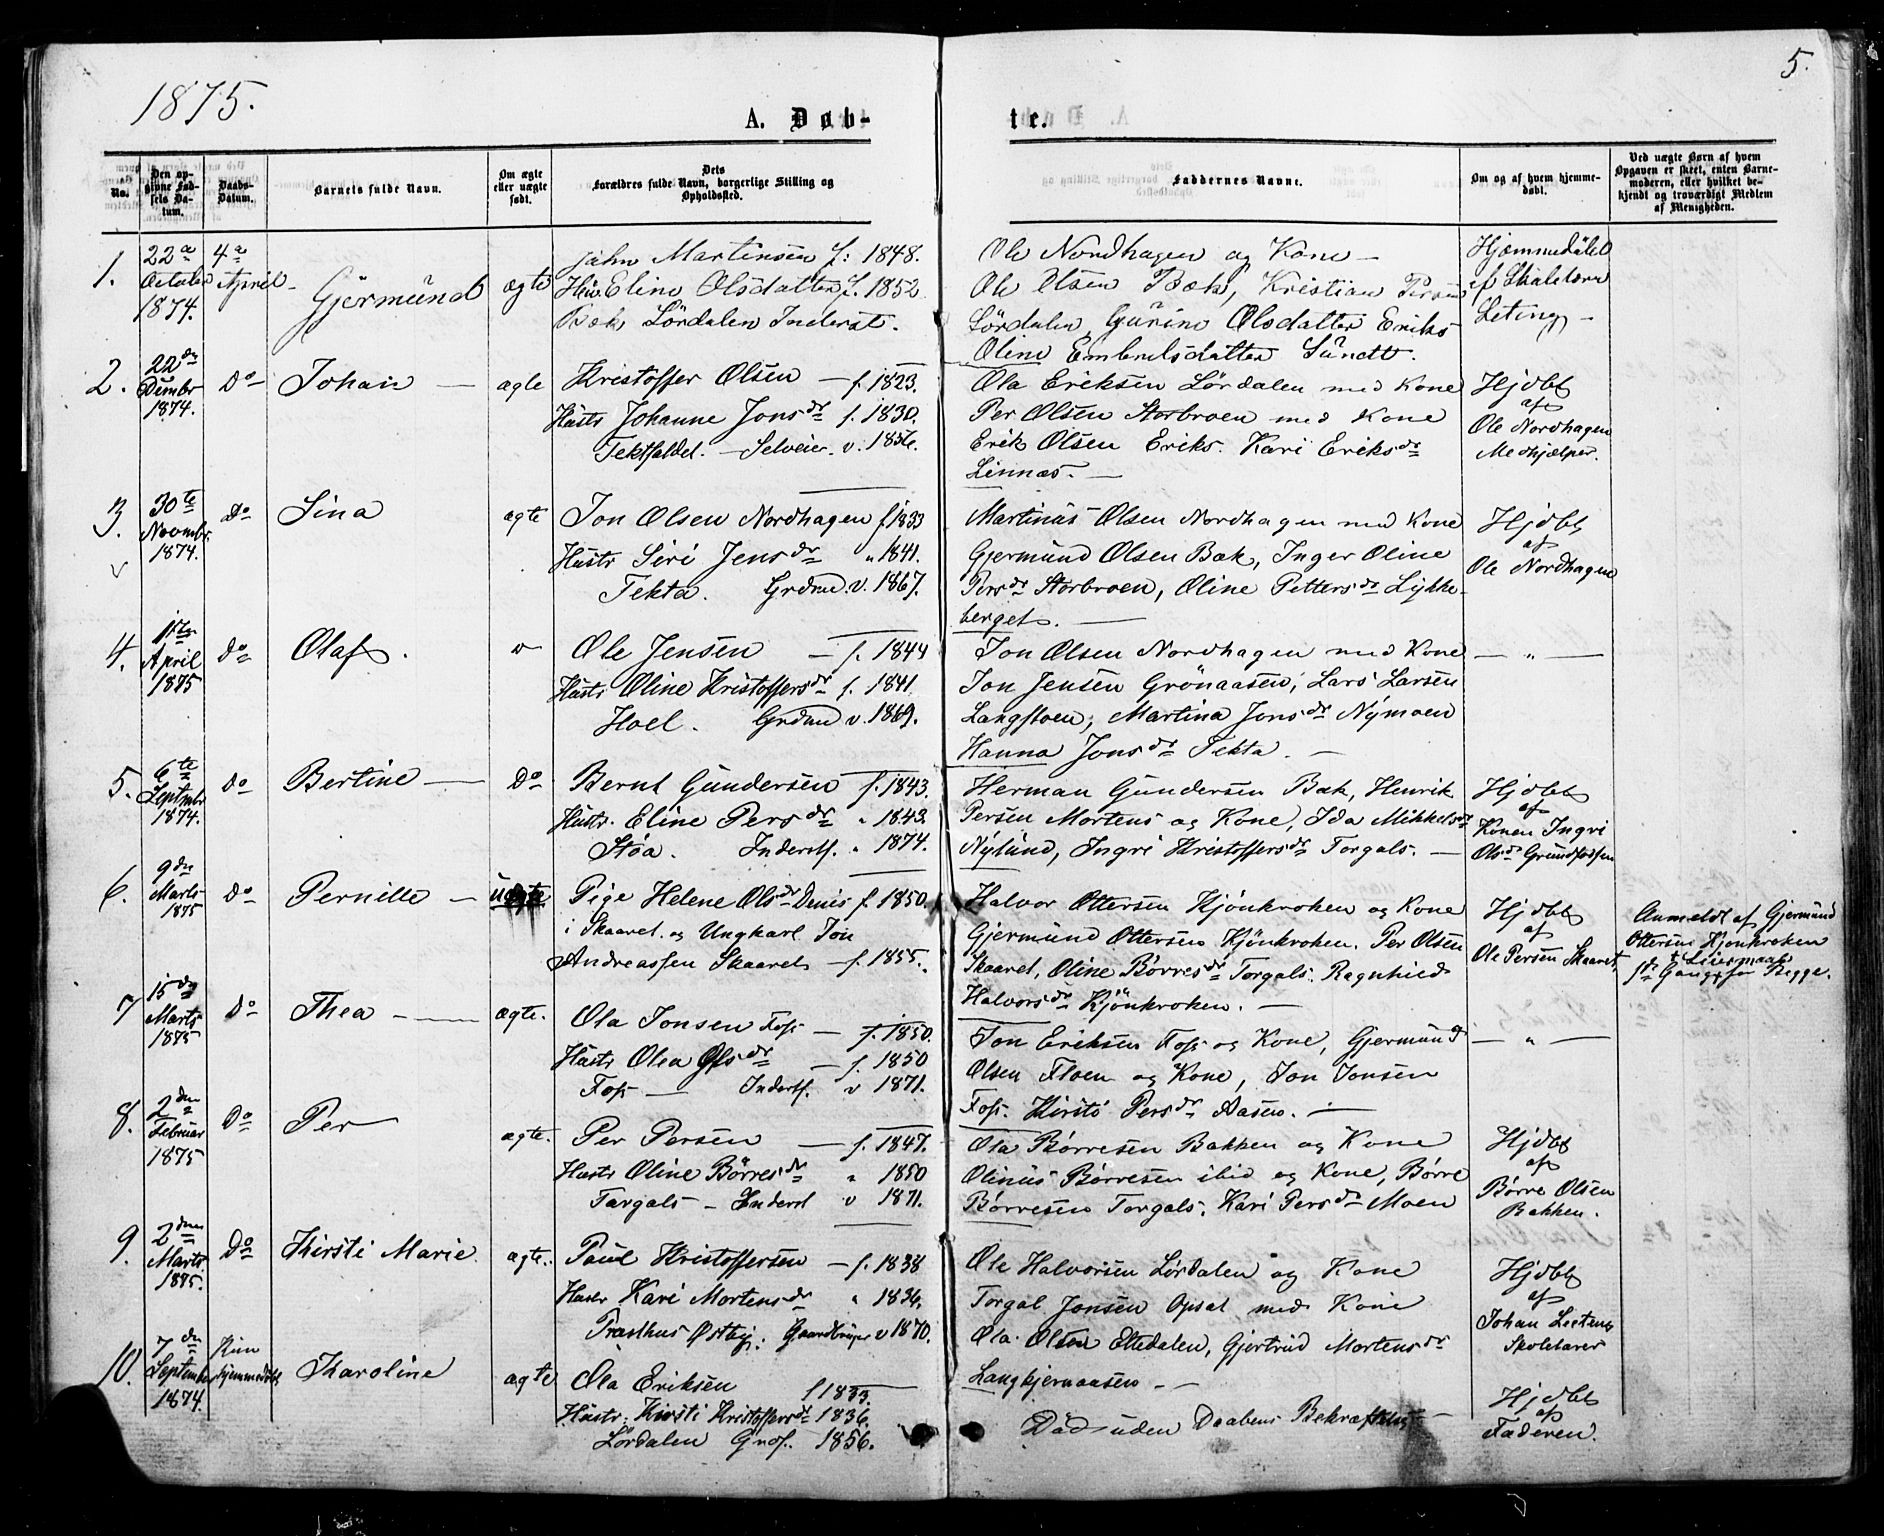 1875.
5.
A. Døb-
te.
No.
Den op-
givne Fød-
sels Da-
tum.
Daabs-
Datum.
Barnets fulde Navn.
Om ægte
eller uægte
født.
Dets
Forældres fulde Navn, borgerlige Stilling og
Opholdssted.
Faddernes Navne.
Om og af hvem hjemme-
døbt.
Ved uægte Børn af hvem
Opgaven er skeet, enten Barne-
moderen, eller hvilket be-
kjendt og troværdigt Medlem
af Menigheden.
1.
22
October
1874.
4
April
Gjermund
ægte
John Martinsen f: 1848.
Eline Olsdatter f. 1852
Bæk Lördalen Inderst.
Ole Nordhagen og Kone
Ole Olsen Bæk, Kristian
Lördalen, Gurine Olsdatter Eriks
Oline Embretsdatter Sundt.
Hjemmedöbt
af
2.
22de
1874.
Do
Johan
ægte
Kristoffer Olsen f. 1823.
Hustr Johanne Jonsdr f. 1830.
Selveier. v. 1856.
Ola Eriksen Lördalen med Kone
Per Olsen Storbroen med Kone
Erik Olsen Eriks. Kari Eriksdr
Linnæs.
Hjdbt
af
Ole Nordhagen
Medhjælper.
3.
30te
Novmbr.
1874.
Do
Sina
ægte
Jon Olsen Nordhagen f 1833
Hustr Siri Jensdr " 1841.
Tekta. Grdmd. v. 1867.
Martinus Olsen Nordhagen med Kone
Gjermund Olsen Bæk, Inger Oline
Persdr Storbroen, Oline Pettersdr Lykke-
berget.
Hjdbt
af
Ole Nordhagen
4.
1ste
April
1875
Do
Olaf.
Ole Jensen f. 1844
Hustr Oline Kristoffersdr f. 1841.
Hoel. Grdmd v. 1869.
Jon Olsen Nordhagen med Kone
Jon Jensen Grönaasen, Lars Larsen
Langfloen, Martina Jonsdr Nymoen
Hanna Jonsdr Tekta.
— " —
5.
6te
Septmbr
1874.
Do
Bertine
Do
Bernt Gundersen f. 1843.
Hustr. Eline Persdr " 1843
Stöa. Inderstf. " 1874.
Herman Gundersen Bæk, Henrik
Persen Mortens og Kone, Ida Mikkelsdr
Nylund, Ingri Kristoffersdr Torgals.
Hjdbt
af
Konen Ingri
Olsdr Grundfossen
6.
9de
Marts
1875
Do
Pernille
Uægte
Pige Helene Olsdr f. 1850.
i Skaaret og Ungkarl Jon
Andreassen Skaaret f. 1855.
Halvor Ottersen Kjönkroken og Kone
Gjermund Ottersen Kjönkroken. Per Olsen
Skaaret, Oline Börresdr Torgals. Ragnhild
Halvorsdr Kjönkroken.
Hjdbt
af
Ole Persen Skaaret,
Anmeldt af Gjermund
Ottersen Kjonkroken
Leiermaal
1ste Gang for Begge.
7
15de
Marts
1875
Do
Thea
ægte.
Ola Jonsen Foss f. 1850.
Hustr Olea Olsdr f. 1850
Foss Inderstf. v 1871.
Jon Eriksen Foss og Kone, Gjermund
Olsen Floen og Kone, Jon Jonsen
Foss. Kirsti Persdr Aasen.
— " —
8.
2den
Februar
1875
Do
Per
ægte.
Per Persen f. 1847.
Hustr Oline Börresdr " 1850
Torgals Inderst v 1871.
Ola Börresen Bakken og Kone
Olinus Börresen ibid og Kone, Börre
Börresen Torgals, Kari Persdr Moen
Hjdbt
af
Börre Olsen
Bakken.
9.
2den
Marts
1875.
Do
Kirsti Marie
ægte.
Paul Kristoffersen f. 1838
Hustr Kari Mortensdr " 1836.
Præsthus Östby. Gaardbruger v 1870.
Ole Halvorsen Lördalen og Kone
Torgal Jonsen Opsal med Kone
Ola Olsen Eltedalen, Gjertrud Mortensdr
Langkjernaasen
Hjdbt
af
Johan
Skolelærer
10.
7de
September
1874.
Kun
hjemmedöbt
Karoline
ægte
Ola Eriksen f 1833.
Hustr. Kirsti Kristoffersdr 1836.
Lördalen 1856.
Död uden Daabens Bekræftelse
Hjdbt
af
Faderen.